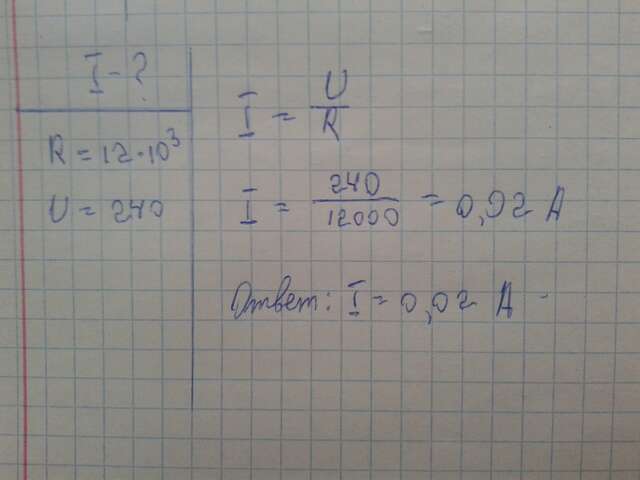 I - ?
R = 12 · 10³
U = 240
I = U/R
I = 240/12000 = 0,02 A
Ответ: I = 0,02 A